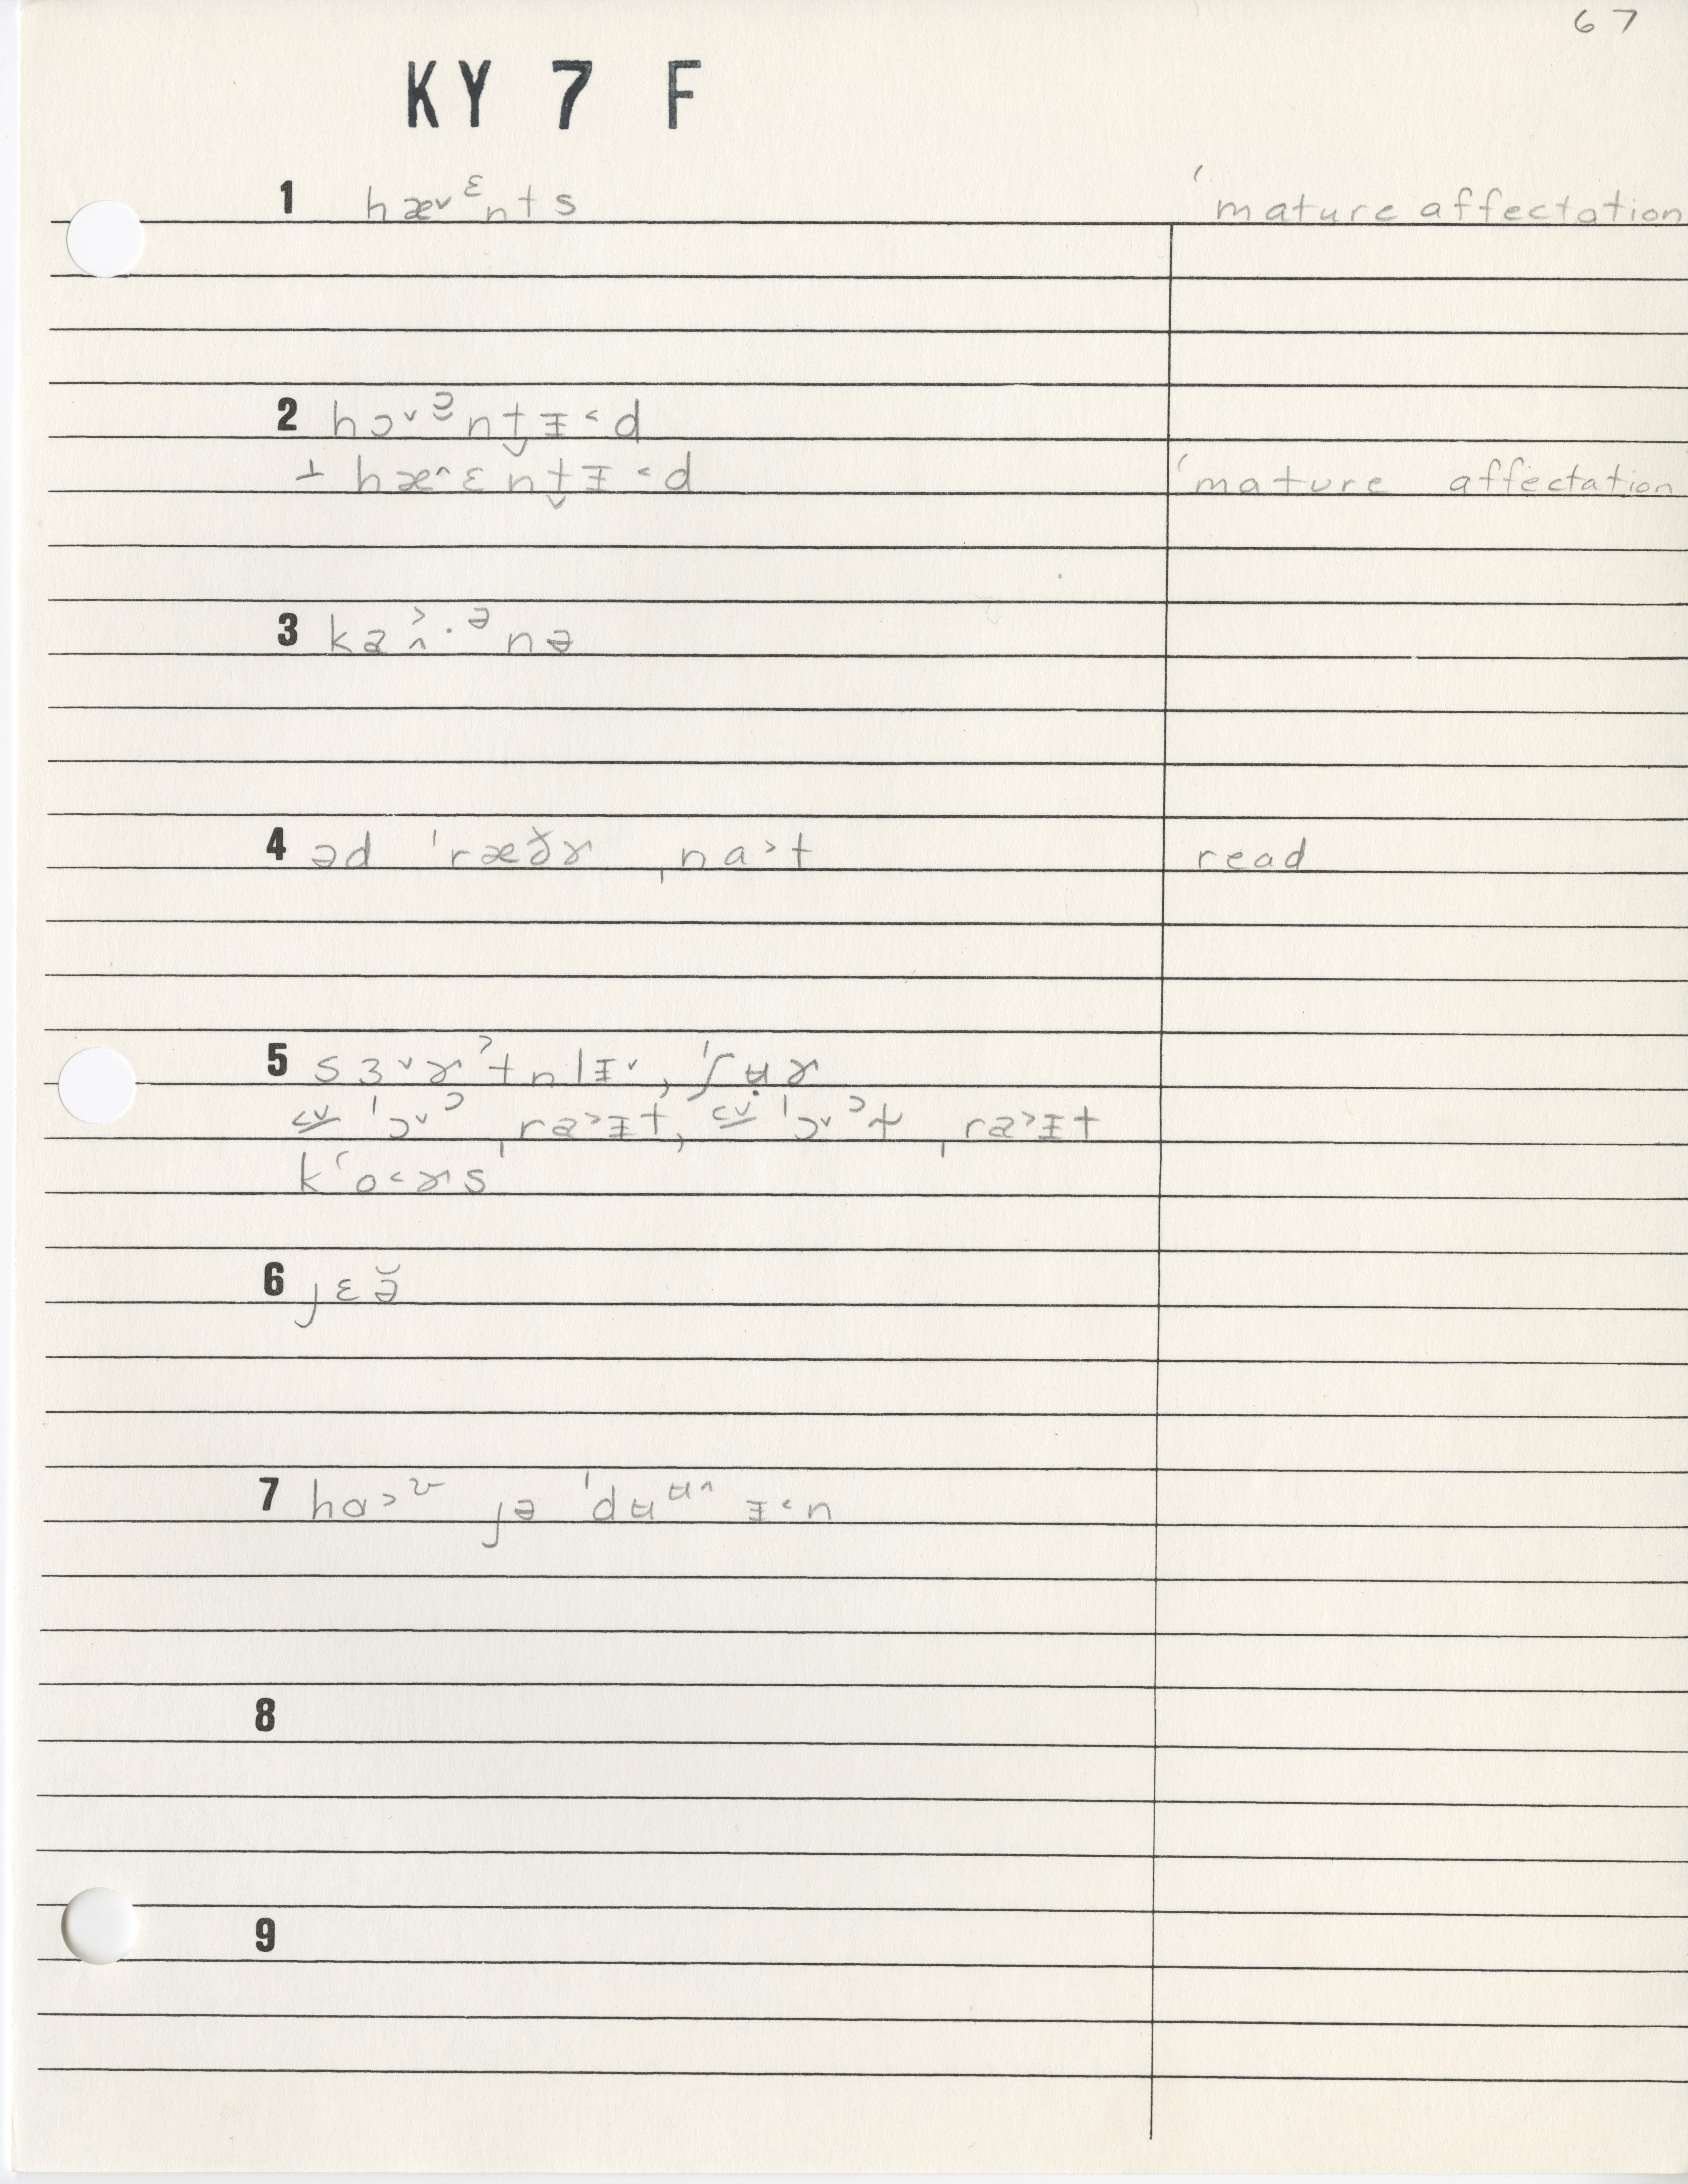 67
KY 7 F
1 hæ˅ᵋnts ʽmature affectation
2 hɔ˅ᵊ̯nt̬ɪ̵˂d
⊥ hæ˄ɛnt̬ɪ̵˂d ʽmature affectation
3 ka˄˃·ᵊnə
4 əd ˈræɾɚ ˌna˃t read
5 sɜ˅ɚˀtnlɪ̵˅, ˈʃʉɚ
ˌra˃ɪ̵t, ˌra˃ɪ̵t
kʽo˂ɚs
6 jɛə̆
7 hɑ˃ᶷ jə ˈdʉᶶ˄ ɪ̵˂n
8
9